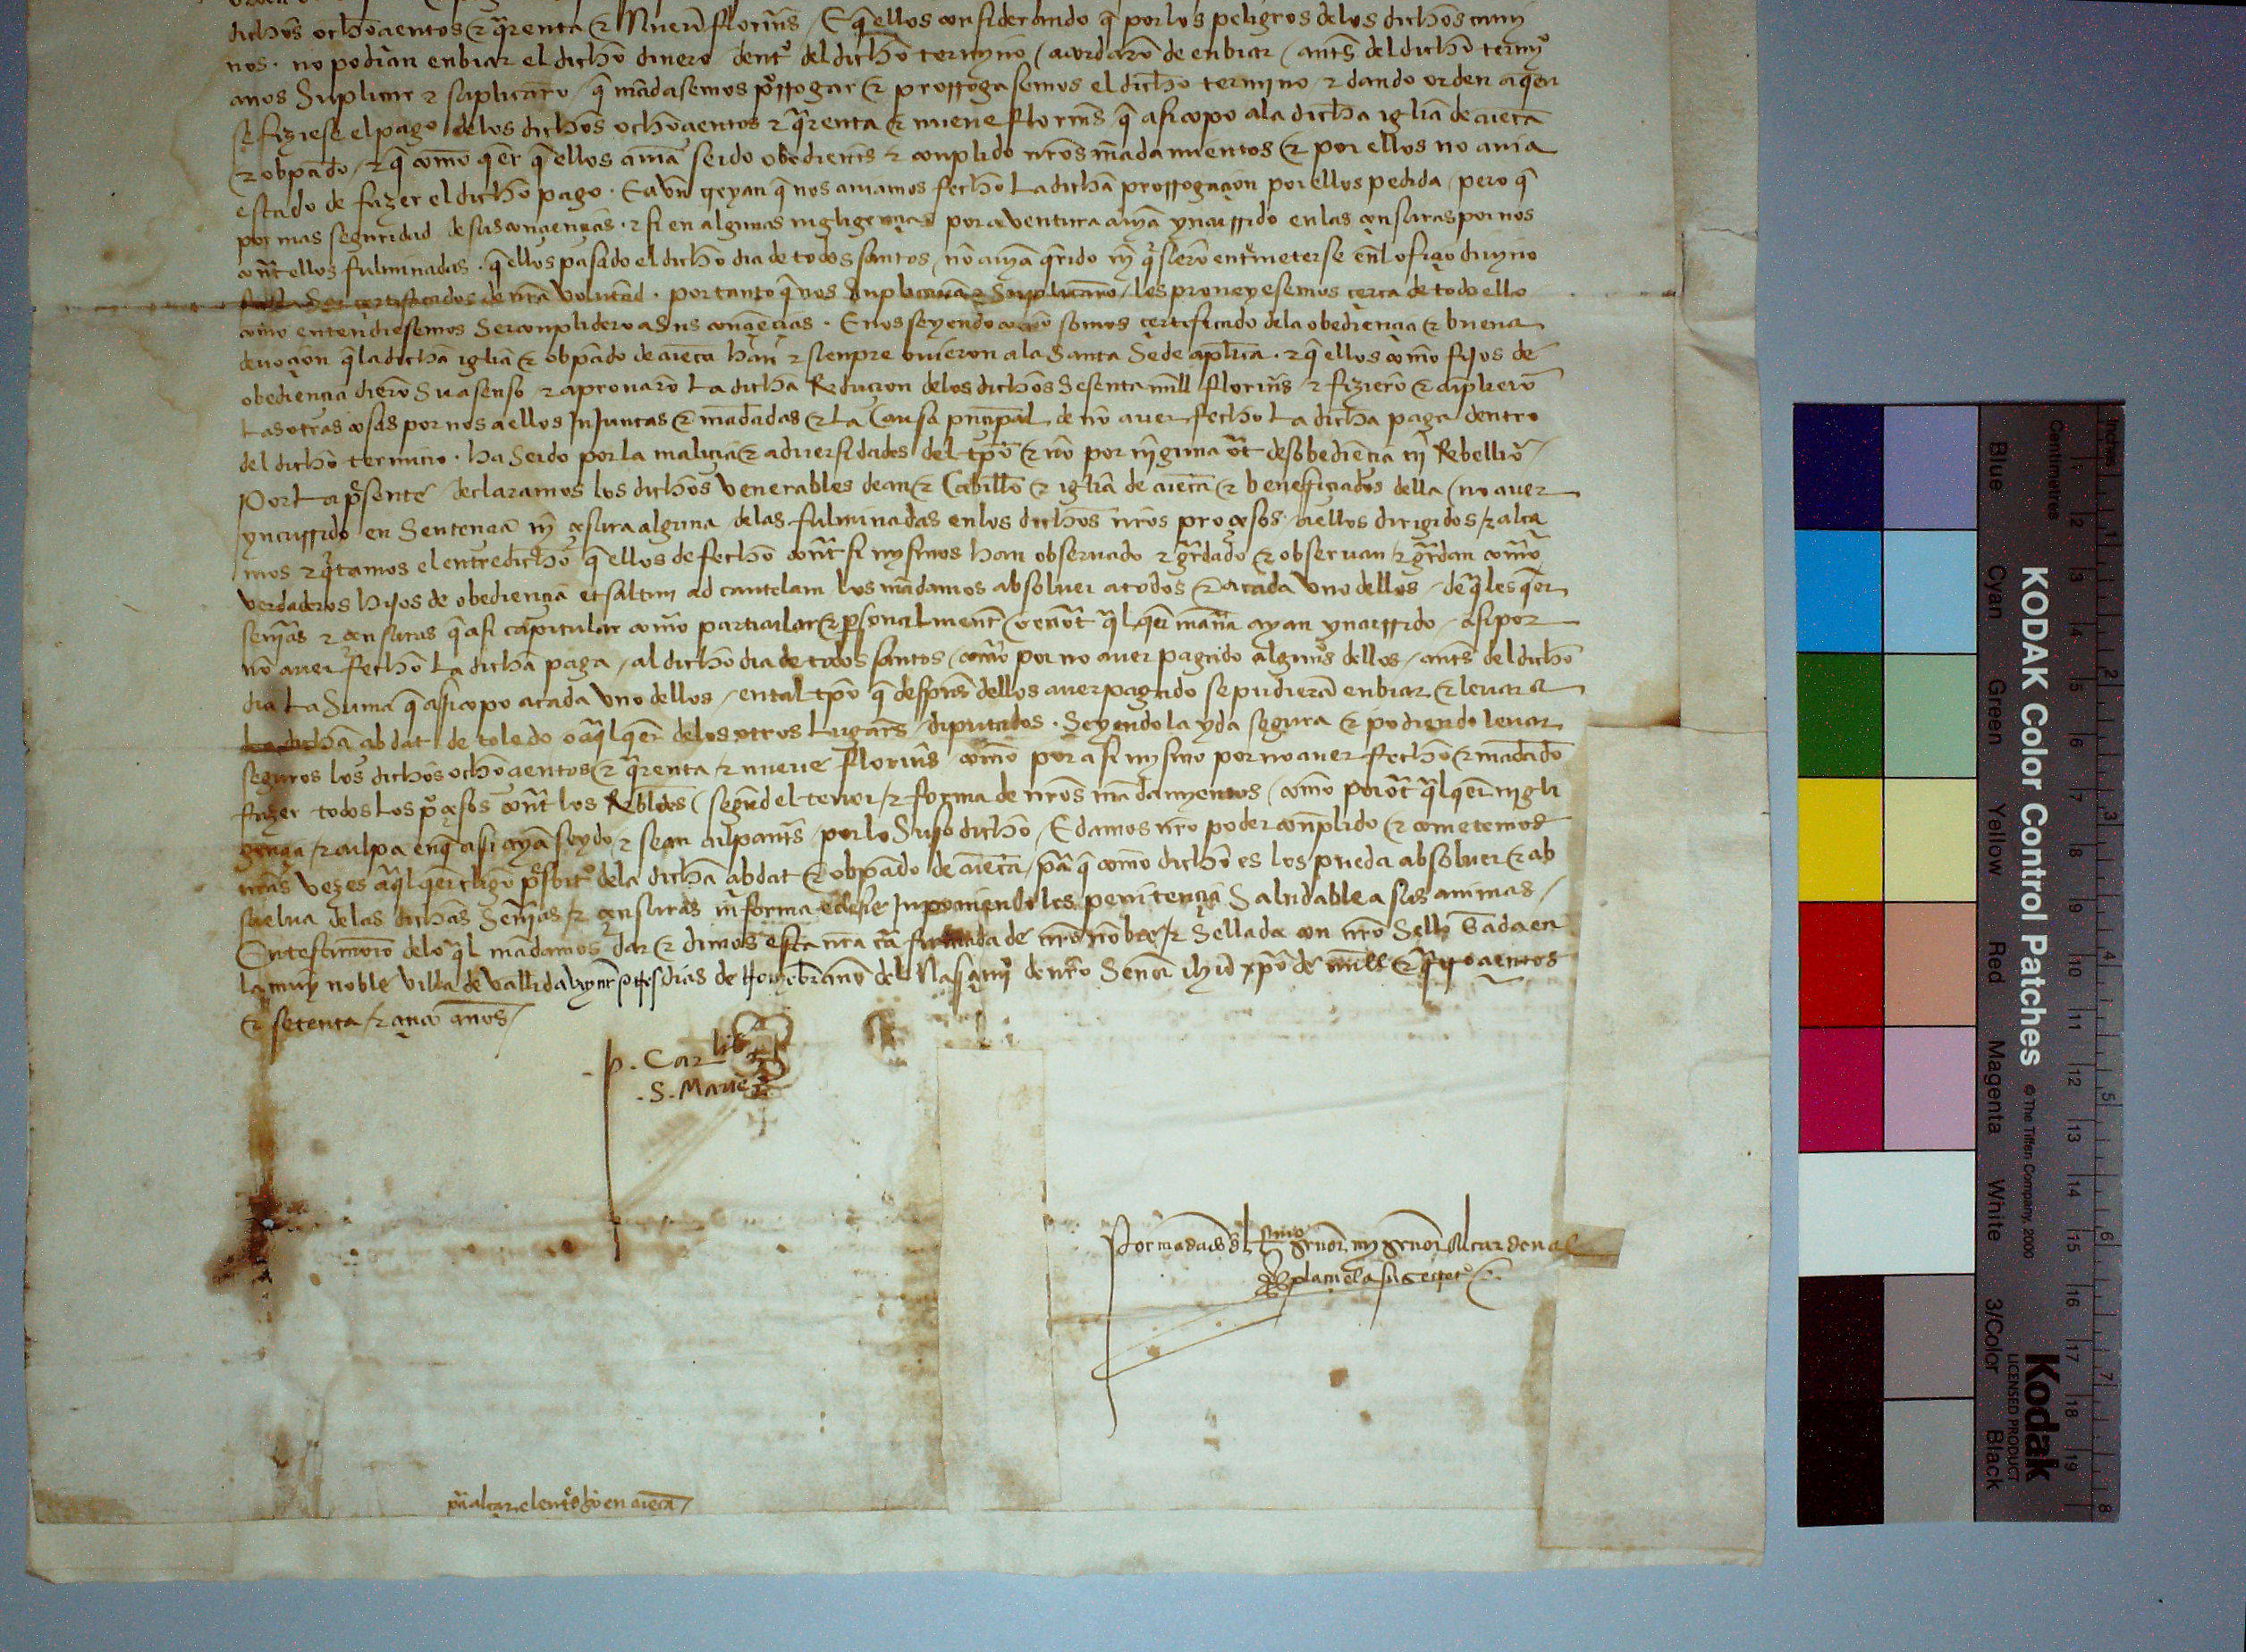 dichos ochoçientos & q̃renta & Nueue florins / E q̃ ellos considerando q̃ por los peligros de los dichos cami
nos . no podian enbiar el dicho dinero dentº del dicho termyno / acordarõ de enbiar / antes del dicho termyº
a nos Suplicar & suplicarõ / q̃ mãdasemos prorrogar & prorrogasemos el dicho termino / & dando orden a q̃en
se fiziese el pago de los dichos ochoçientos & q̃renta & nueue florins q̃ asi copo a la dicha igl̃ia de cuenca
& obpãdo / & q̃ como q̃er q̃ ellos auiã seido obedientes & conplido nr̃os mãdamientos & por ellos no auia
estado de fazer el dicho pago . E avn creyan q̃ nos auiamos fecho La dicha prorrogaçion por ellos pedida / pero q̃
por mas seguridad de sus conçiençias . & si en algunas nigligençias por aventura auiã yncurrido en las çensuras por nos
contra ellos fulminadas . q̃ ellos pasado el dicho dia de todos santos / nõ auiã q̃rido nĩ q̃sierõ entremeterse en l ofiçio diuyno
Ser çertificados de nr̃a volũtad . por tanto q̃ nos Suplicauã & Suplicarõ / les proueyesemos çerca de todo ello
como entendiesemos Ser conplidero a Sus conçiẽçias . E nos seyendo como somos çertificado de la obediençia & buena
deuoçion q̃ la dicha igl̃ia & obpãdo de cuenca han & sienpre ouieron a la Santa Sede apl̃ica . & q̃ ellos como fijos de
obediençia dierõ Su asenso & aprouarõ La dicha Reduçion de los dichos Sesenta mill florins & fizierõ & cũplierõ
Las otras cosas por nos a ellos Injuntas & mãdadas & La Causa prinçipal de nõ auer fecho La dicha paga dentro
del dicho termino . ha Seido por la maliçia & aduersidades del tp̃o & nõ por nĩguna otr̃ desobediẽçia nĩ Rebelliõ /
Por La p̃sente declaramos los dichos venerables dean & Cabillo & igl̃ia de cuenca & benefiçiados della / no auer
yncurrido en Sentençia nĩ çẽsura alguna de las fulminadas en los dichos nr̃os proçesos a ellos dirigidos / & alça
mos & q̃tamos el entredicho q̃ ellos de fecho contr̃ si mysmos han obseruado & g̃rdado & obseruan & g̃rdan como
verdaderos hijos de obediençia et saltim ad cautelam los mãdamos absoluer a todos & a cada vno dellos / de q̃les q̃er
sen̄ias & çensuras q̃ asi capitular como particular & p̃sonalmente o en otr̃ q̃l q̃er manera ayan yncurrido / asi por
nõ auer fecho La dicha paga / al dicho dia de todos santos / como por no auer pagado algunos dellos / antes del dicho
dia La Suma q̃ assi copo a cada vno dellos / en tal tp̃o q̃ despues dellos auer pagado se pudierã enbiar & leuar a
La dicha abdat de toledo o a q̃l q̃er de los otros Lugares diputados . Seyendo la yda segura & podiendo leuar
seguros los dichos ochoçientos & q̃renta & nueue florins como por asi mysmo por no auer fecho & mãdado
fazer todos Los p̃çesos contr̃ los Rebldes / segũd el tenor & forma de nr̃os mãdamyentos / como por otr̃ q̃l q̃er nigli
gençia & culpa en q̃ asi ayã seydo & sean culpantes / por lo Suso dicho / E damos nr̃o poder conplido & cometemos
nr̃as vezes a q̃l q̃er clerigo p̃sbitº de la dicha abdat & obpãdo de cuenca / p̃a q̃ como dicho es los pueda absoluer & ab
suelua de las dichas Sen̄ias & çensuras in forma eclesie Inponiendoles penitençia Saludable a sus animas /
En testimonio de lo q̃l mãdamos dar & dimos esta nr̃a cr̃a firmada de nr̃o nõbre & Sellada con nr̃o Sello Dada en
la muy noble villa de vallid a veynte & tres dias de Nouiebre año del Nasçimyº de nr̃o Senor ihũ xp̃o de mill & q̃troçientos
& setenta / & çinco años /
. p . Carlis
. S . Marie
Por mãdado del Rmo senor my senor el cardenal
p̃a alçar el entrº dho en cuenca /